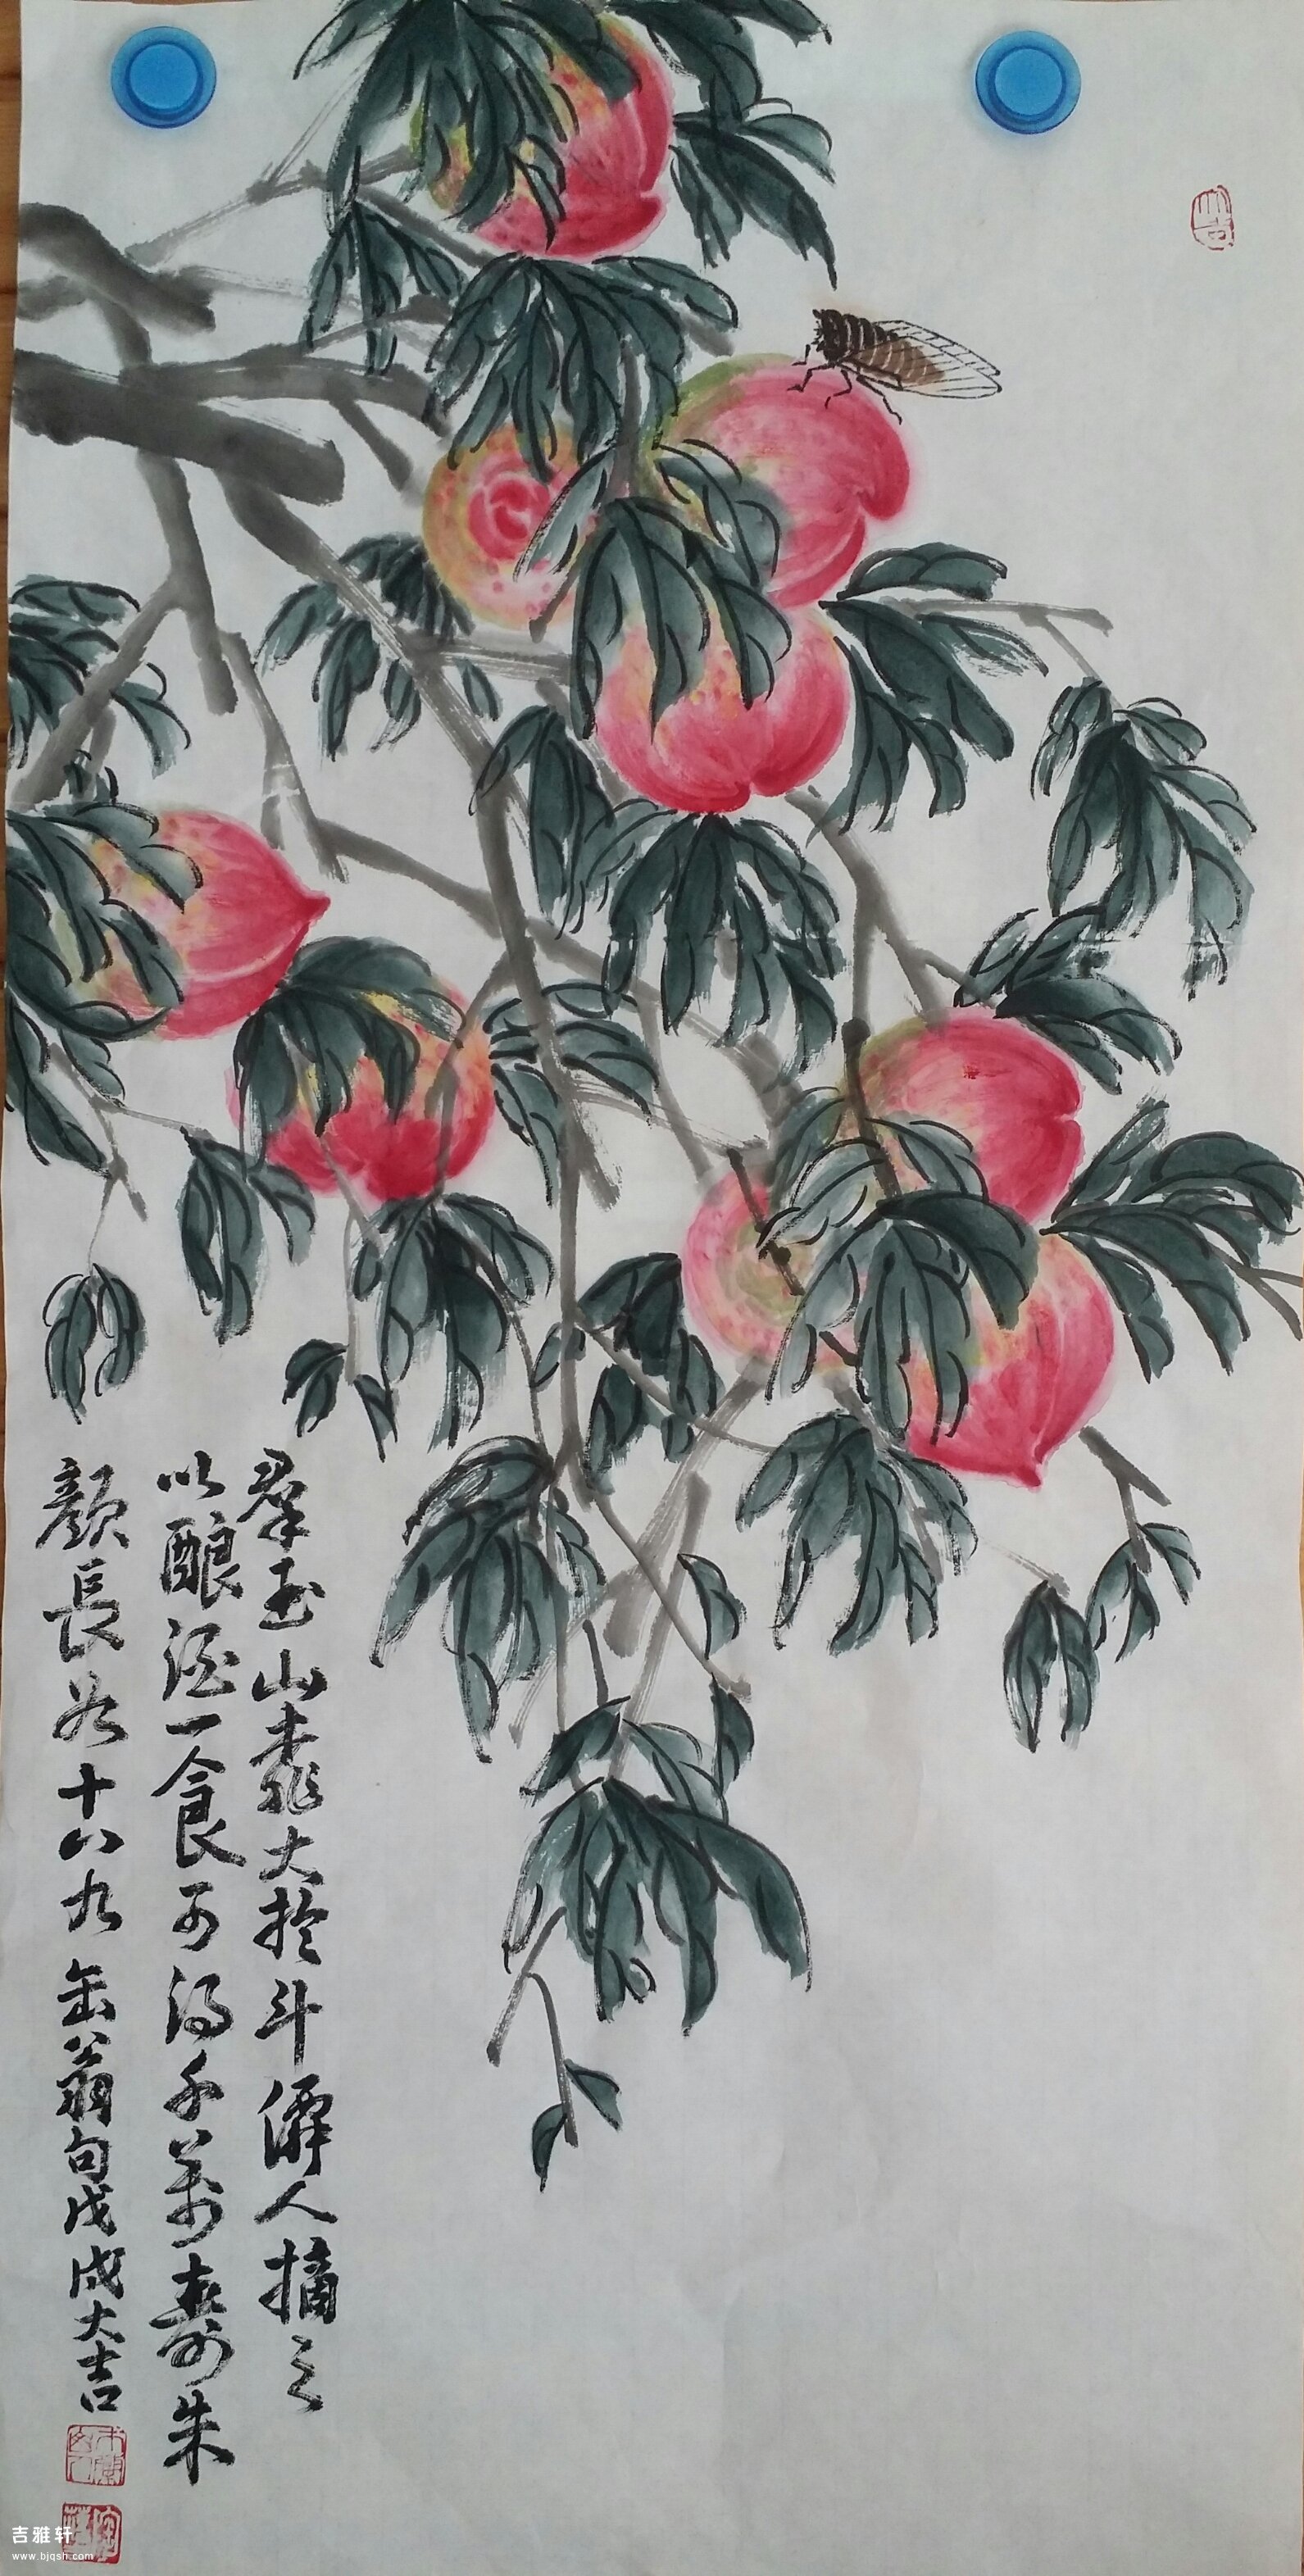 羣玉山桃大於斗僊人摘之
以酿酒一食可得千萬壽朱
顏長如十八九缶翁句戊戌大吉
大吉
吉雅轩
www.bjqsh.com